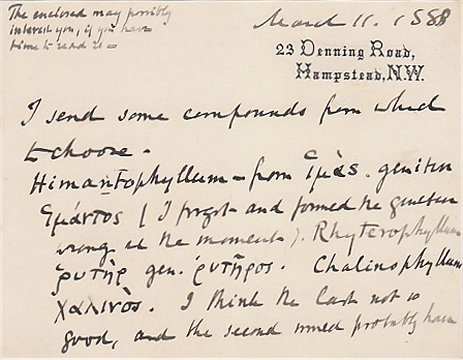 The enclosed may possibly
interest you, if you have
time to read it =
March 11. 1888
23 Denning Road,
Hampstead, N.W.
I send some compounds from which
to choose.
Himantophyllum - from ἱμὰς. genitive
ἱμάντος (I forgot and formed the genitive
wrong at the moment). Rhyterophyllum
ῥυτὴρ gen. ῥυτῆρος. Chalinophyllum
χαλινὸς. I think the last not so
good, and the second would probably have